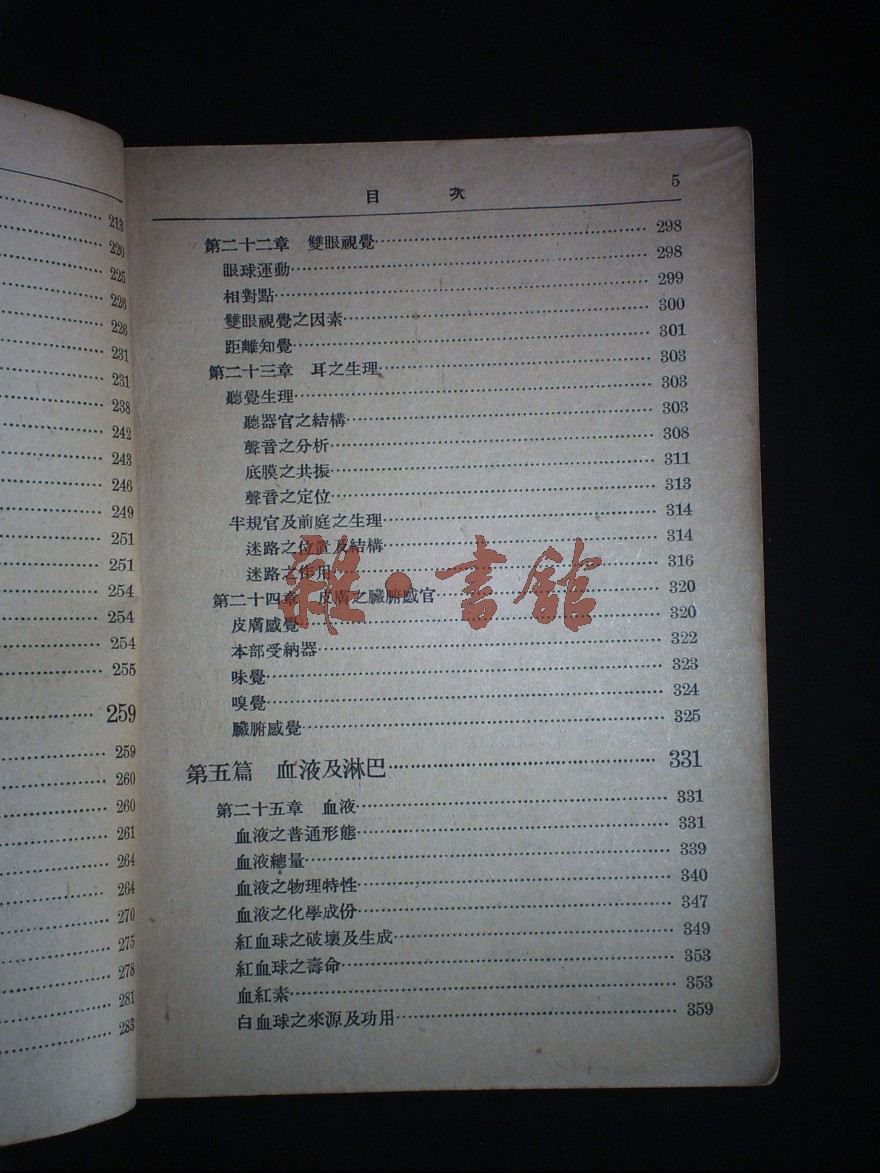 213
220
225
228
228
231
231
238
242
243
246
249
251
251
254
254
254
255
259
259
260
260
261
264
264
270
275
278
281
283
目 次 5
第二十二章 雙眼視覺 298
眼球運動 298
相對點 299
雙眼視覺之因素 300
距離知覺 301
第二十三章 耳之生理 303
聽覺生理 303
聽器官之結構 303
聲音之分析 308
底膜之共振 311
聲音之定位 313
半規官及前庭之生理 314
迷路之位置及結構 314
迷路之作用 316
第二十四章 皮膚之臟腑感官 320
皮膚感覺 320
本部受納器 322
味覺 323
嗅覺 324
臟腑感覺 325
第五篇 血液及淋巴 331
第二十五章 血液 331
血液之普通形態 331
血液總量 339
血液之物理特性 340
血液之化學成份 347
紅血球之破壞及生成 349
紅血球之壽命 353
血紅素 353
白血球之來源及功用 359
雜·書館